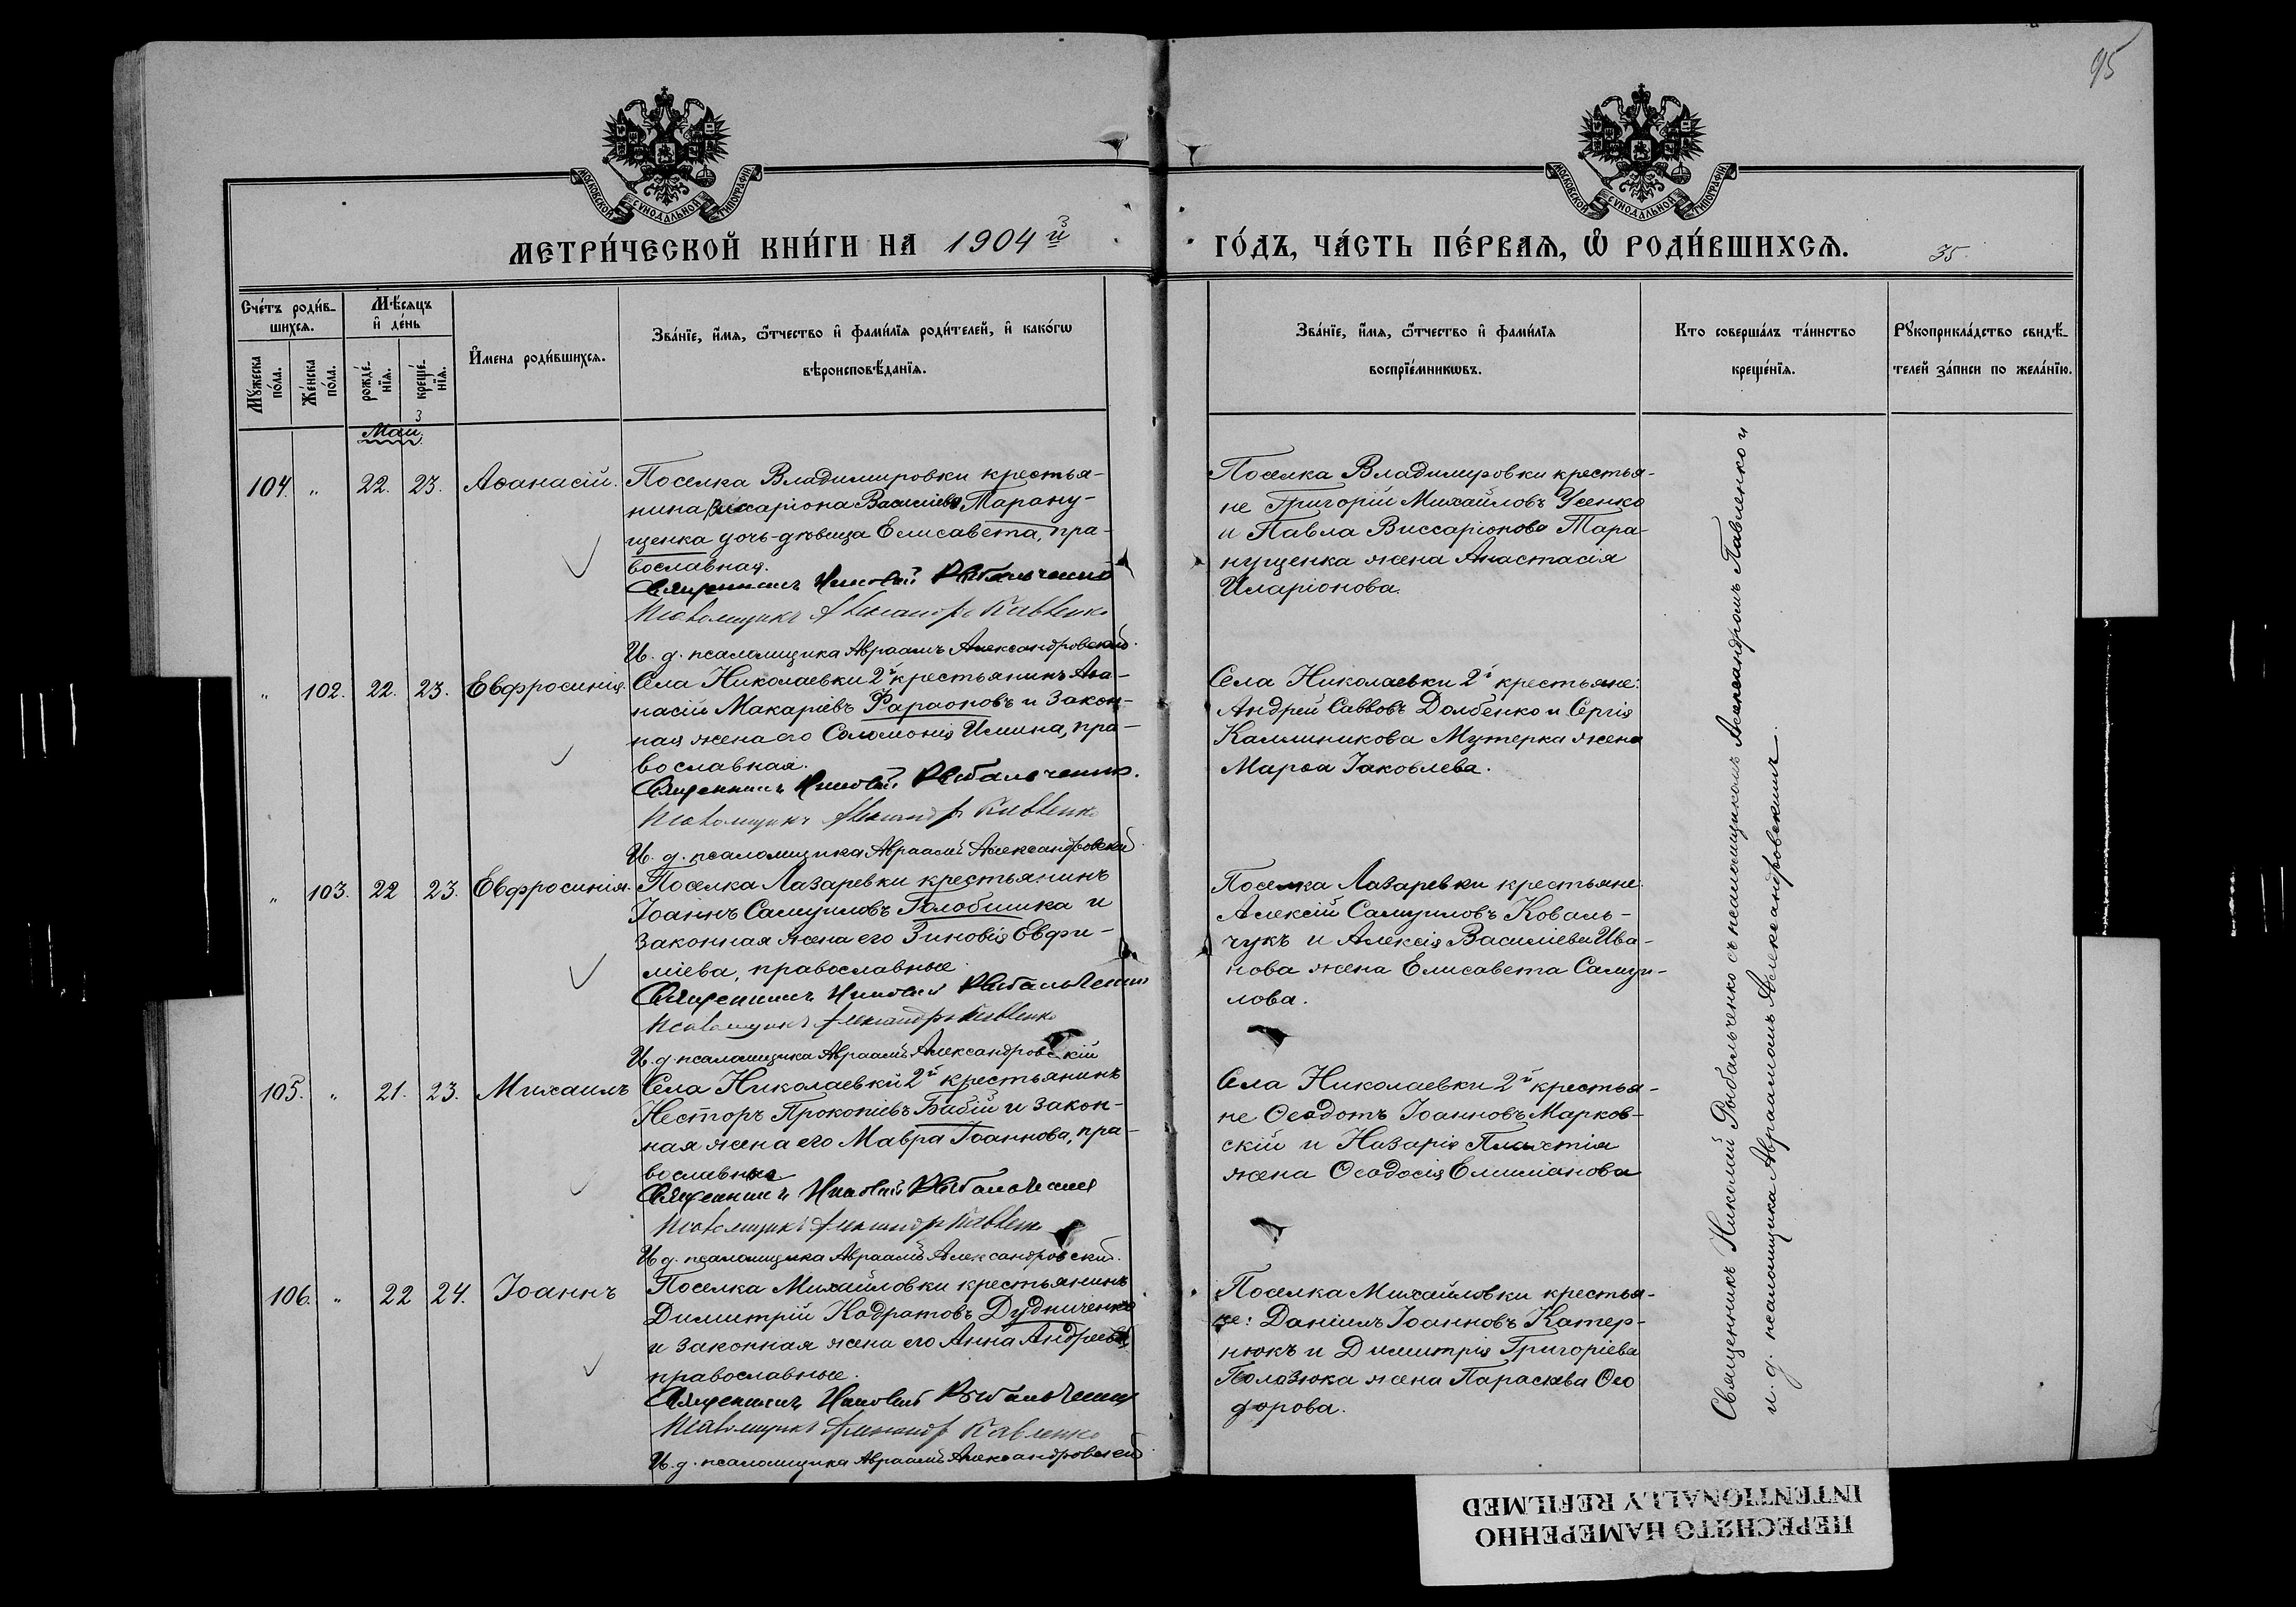 95
МОСКОВСКОЙ СУНОДАЛЬНОЙ ТИПОГРАФІИ
МОСКОВСКОЙ СУНОДАЛЬНОЙ ТИПОГРАФІИ
МЕТРИ́ЧЕСКОЙ КНИ́ГИ НА 1904 й
ГО́ДЪ, ЧА́СТЬ ПЕ́РВАЯ, Ѡ РОДИ́ВШИХСЯ.
35.
Сче́тъ роди́в-
шихся.
Мꙋ́жеска по́ла.
Же́нска по́ла.
Мѣ́сяцъ
и де́нь
рожде́-
нїя.
креще́-
нїя.
И́мена роди́вшихся.
Зва́нїе, и́мя, ѻ́тчество и фами́лїя роди́телей, и како́гѡ
вѣроисповѣ́данїя.
Зва́нїе, и́мя, ѻ́тчество и фами́лїя
воспрїе́мникѡвъ.
Кто соверша́лъ та́инство
креще́нїя.
Рꙋкоприкла́дство свидѣ́-
телей за́писи по жела́нїю.
Май.
104. " 22. 23. Аѳанасій.
Поселка Владимировки крестья-
нина Виссаріона Василіева Тарану-
щенка дочь-девица Елисавета, пра-
вославная.
Священникъ Николай Рыбальченко
Псаломщикъ Александръ Павленко
И. д. псаломщика Авраамъ Александровскій.
Поселка Владимировки крестья-
не Григорій Михайловъ Усенко
и Павла Виссаріонова Тара-
нущенка жена Анастасія
Иларіонова.
" 102. 22. 23. Евфросинія.
Села Николаевки 2й крестьянинъ Аѳа-
насій Макаріевъ Фараоновъ и закон-
ная жена его Соломонія Ильина, пра-
вославная.
Священникъ Николай Рыбальченко.
Псаломщикъ Александръ Павленко
И. д. псаломщика Авраамъ Александровскій
Села Николаевки 2й крестьяне:
Андрей Саввовъ Долбенко и Сергія
Каллиникова Мутерка жена
Марѳа Іаковлева.
" 103. 22 23. Евфросинія.
Поселка Лазаревки крестьянинъ
Іоаннъ Самуиловъ Голобышка и
законная жена его Зиновія Евфи-
міева, православные.
Священникъ Николай Рыбальченко
Псаломщикъ Александръ Павленко
И. д. псаломщика Авраамъ Александровскій
Поселка Лазаревки крестьяне:
Алексій Самуиловъ Коваль-
чукъ и Алексія Василіева Ива-
нова жена Елисавета Самуи-
лова.
105. " 21. 23. Михаилъ
Села Николаевки 2й крестьянинъ
Несторъ Прокопіевъ Бабій и закон-
ная жена его Мавра Іоаннова, пра-
вославные
Священникъ Николай Рыбальченко
Псаломщикъ Александръ Павленко
И. д. псаломщика Авраамъ Александровскій.
Села Николаевки 2й крестья-
не Ѳеодотъ Іоанновъ Марков-
скій и Назарія Плахтія
жена Ѳеодосія Емиліанова
106. " 22 24. Іоаннъ
Поселка Михайловки крестьянинъ
Димитрій Кодратовъ Дудниченко
и законная жена его Анна Андреева
православные.
Священникъ Николай Рыбальченко
Псаломщикъ Александръ Павленко
И. д. псаломщика Авраамъ Александровскій
Поселка Михайловки крестья-
не: Даніилъ Іоанновъ Катер-
нюкъ и Димитрія Григоріева
Полозюка жена Параскева Ѳео
дорова.
Священникъ Николай Рыбальченко съ псаломщикомъ Александромъ Павленко и
и. д. псаломщика Авраамомъ Александровскимъ.
ПЕРЕСНЯТО НАМЕРЕННО
INTENTIONALLY REFILMED